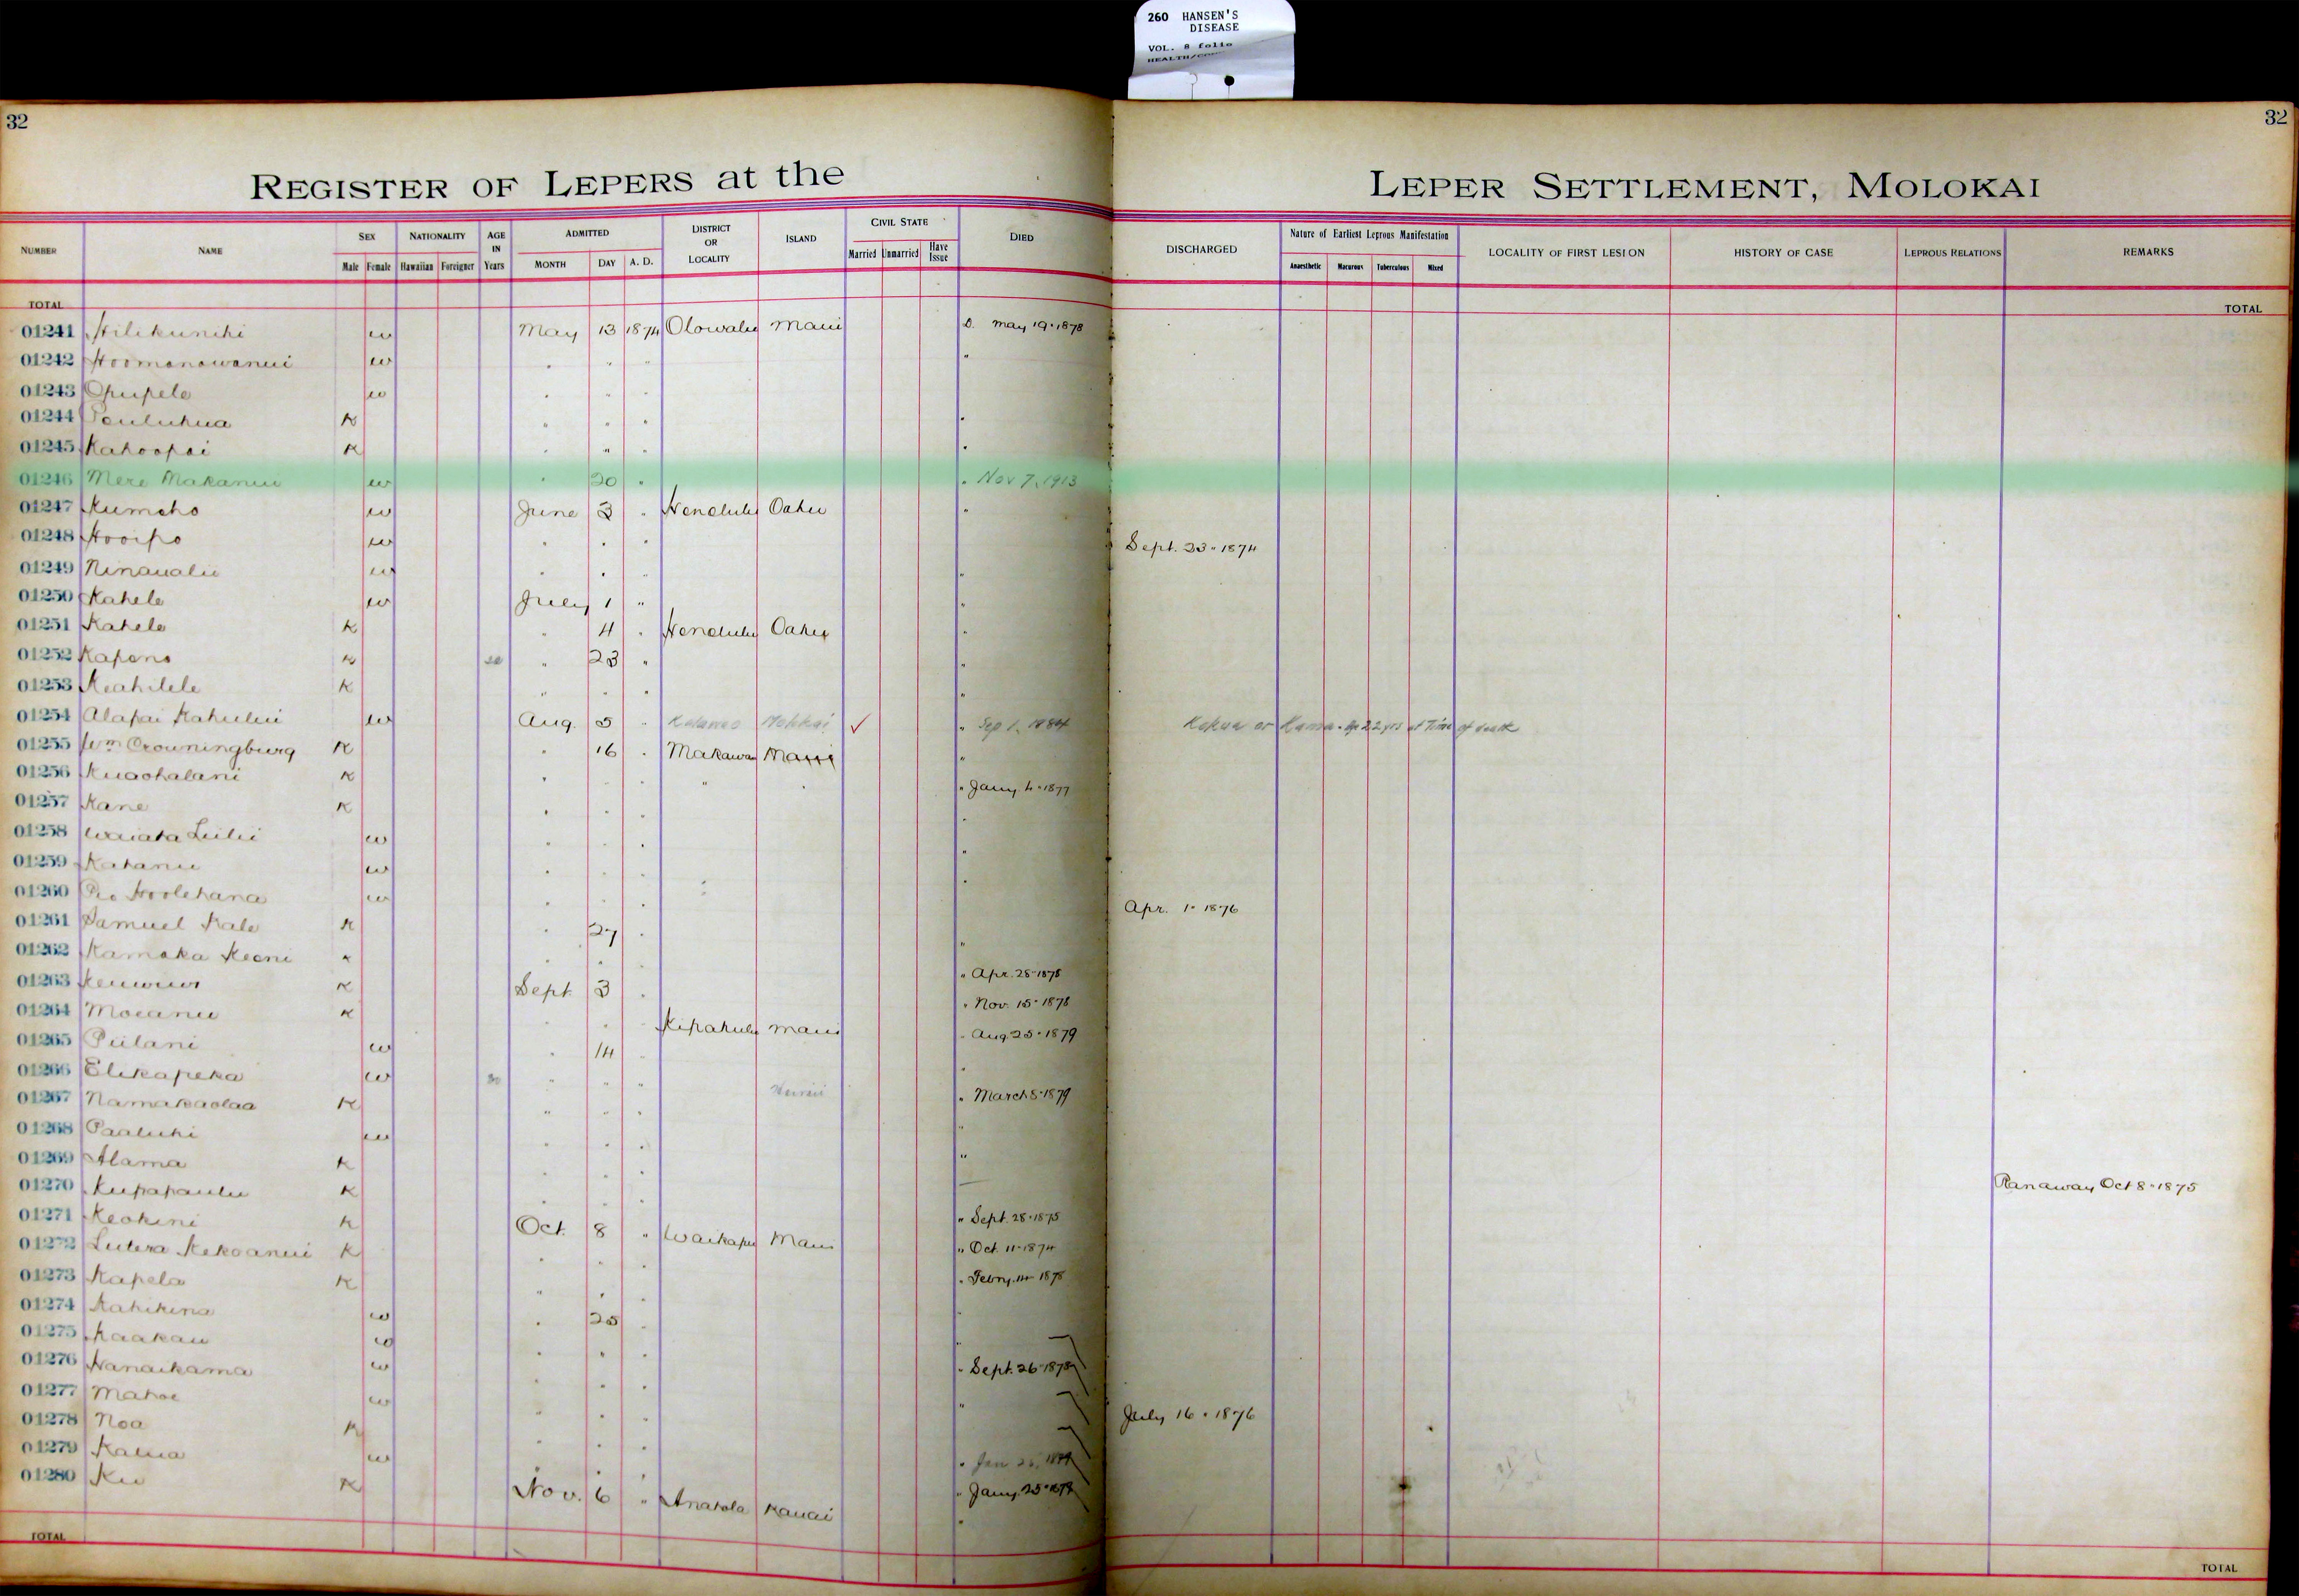 260 HANSEN'S
DISEASE
VOL. 8 folio
32
32
REGISTER OF LEPERS at the LEPER SETTLEMENT, MOLOKAI
NUMBER NAME SEX NATIONALITY AGE IN Years ADMITTED DISTRICT OR LOCALITY ISLAND CIVIL STATE DIED DISCHARGED Nature of Earliest Leprous Manifestation LOCALITY OF FIRST LESION HISTORY OF CASE LEPROUS RELATIONS REMARKS
Male Female Hawaiian Foreigner MONTH DAY A. D. Married Unmarried Have Issue Anaesthetic Macurous Tuberculous Mixed
TOTAL TOTAL
01241 Hilikunihi w May 13 1874 Olowalu Maui D. May 19. 1878
01242 Hoomanawanui w " " " "
01243 Opupele w " " "
01244 K " " " "
01245 Kahoopai K " " " "
01246 Mere Makanui w " 20 " " Nov 7, 1913
01247 Kumeho w June 3 " Honolulu Oahu "
01248 Hooipo w " " " Sept. 23. 1874
01249 Ninaualu w " " " "
01250 Kahele w July 1 " "
01251 Kahele K " 4 " Honolulu Oahu "
01252 Kapena K " 23 " "
01253 Keahilele K " " " "
01254 Alapai Kahului w Aug. 5 " Molokai ✓ " Sep 1, 1884 Kokua or Kamaa. Age 22 yrs at Time of death
01255 Wm Crowningburg K " 16 " Makawao Maui "
01256 Kuaohalani K " " " " " " Jany. 4. 1877
01257 Kane K " " " "
01258 Waiaka Luilii w " " " "
01259 Kahanu w " " " "
01260 Pio Hoolehana w " " " " Apr. 1. 1876
01261 Samuel Kale K " 27 " "
01262 Kamaka Keoni K " " " Apr. 28. 1878
01263 K Sept 3 " " Nov. 15. 1878
01264 Moeanu K " " " Kipahulu Maui " Aug 25. 1879
01265 Piilani w " 14 " "
01266 Elikapeka w 30 " " " Hawaii " March 5. 1879
01267 Namakaolaa K " " " "
01268 Paaluhi w " " " "
01269 Alama K " " "
01270 Kupapaulu K " " " " Sept. 28. 1875 Ranaway Oct 8. 1875
01271 Keokini K Oct. 8 " Waikapu Maui " Oct. 11. 1874
01272 Lutera Kekoanui K " " " " Febry. 14 1878
01273 Kapela K " " "
01274 Kahikina w " 25 " "
01275 Kaakau w " " " " Sept. 26. 1878
01276 Nanaikama w " " " "
01277 Mahoe w " " " July 16. 1876
01278 Noa K " " "
01279 Kalua w " " " Jany. 25. 1879
01280 Ku K Nov. 6 " Anahola Kauai "
TOTAL TOTAL